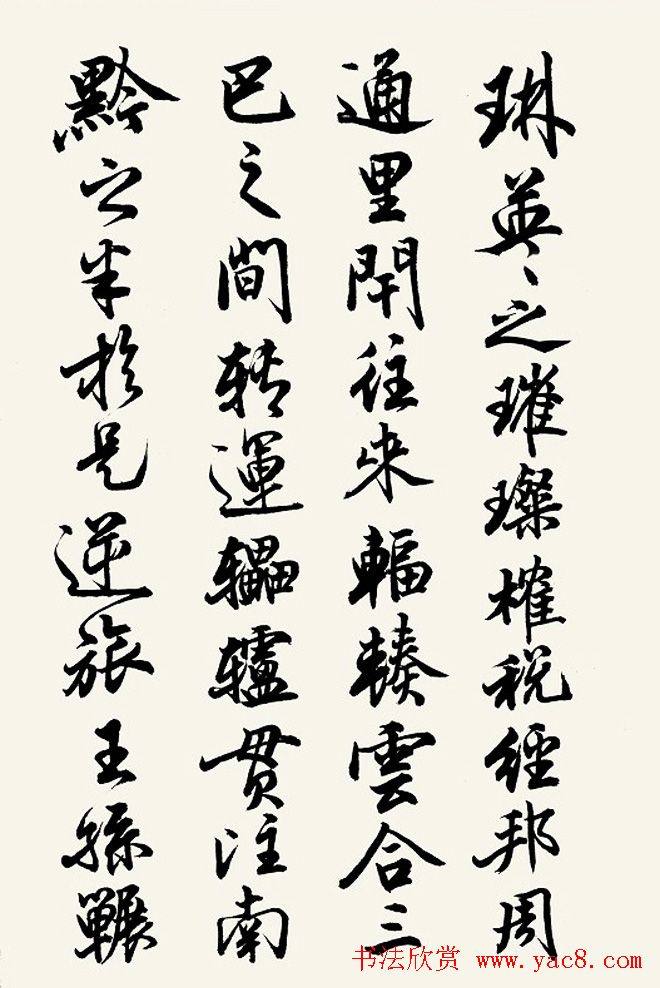 琳英英之璀璨榷税經邦周
通里閈往来輻輳雲合三
巴之間转運轠轤貫注南
黔之半於是逆旅王孫冁
书法欣赏 www.yac8.com